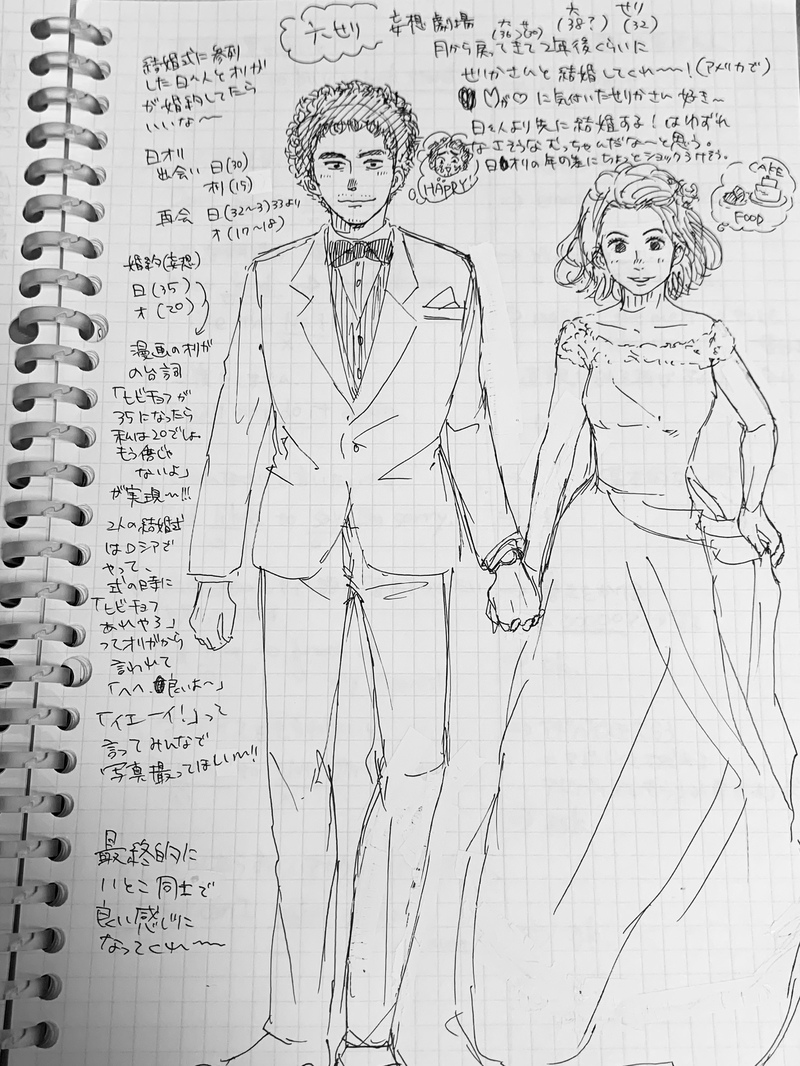 六せり
妄想劇場
六(36) せ(30)
六(38?)
せり(32)
月から戻ってきて2年後くらいに
せりかさんと結婚してくれ〜〜!(アメリカで)
♡が♡に気付いたせりかさん好き〜
日々人より先に結婚する!はゆずれ
なさそうなむっちゃんだな〜と思う。
日オリの年の差にちょっとショックうけそう。
結婚式に参列
した日々人とオリガ
が婚約してたら
いいな〜
日オリ
出会い 日(30)
オリ(15)
再会 日(32〜3)33より
オ(17〜18)
婚約(妄想)
日(35)
オ(20)
漫画のオリガ
の台詞
「ヒビチョフが
35になったら
私は20でしょ
もう倍じゃ
ないよ」
が実現〜!!!
2人の結婚式
はロシアで
やって、
式の時に
「ヒビチョフ
あれやろ」
ってオリガから
言われて
「へへ、良いよ〜」
「イエーイ!」って
言ってみんなで
写真撮ってほしい〜!!
最終的に
いとこ同士で
良い感じに
なってくれ〜〜
HAPPY!
CAFE
FOOD